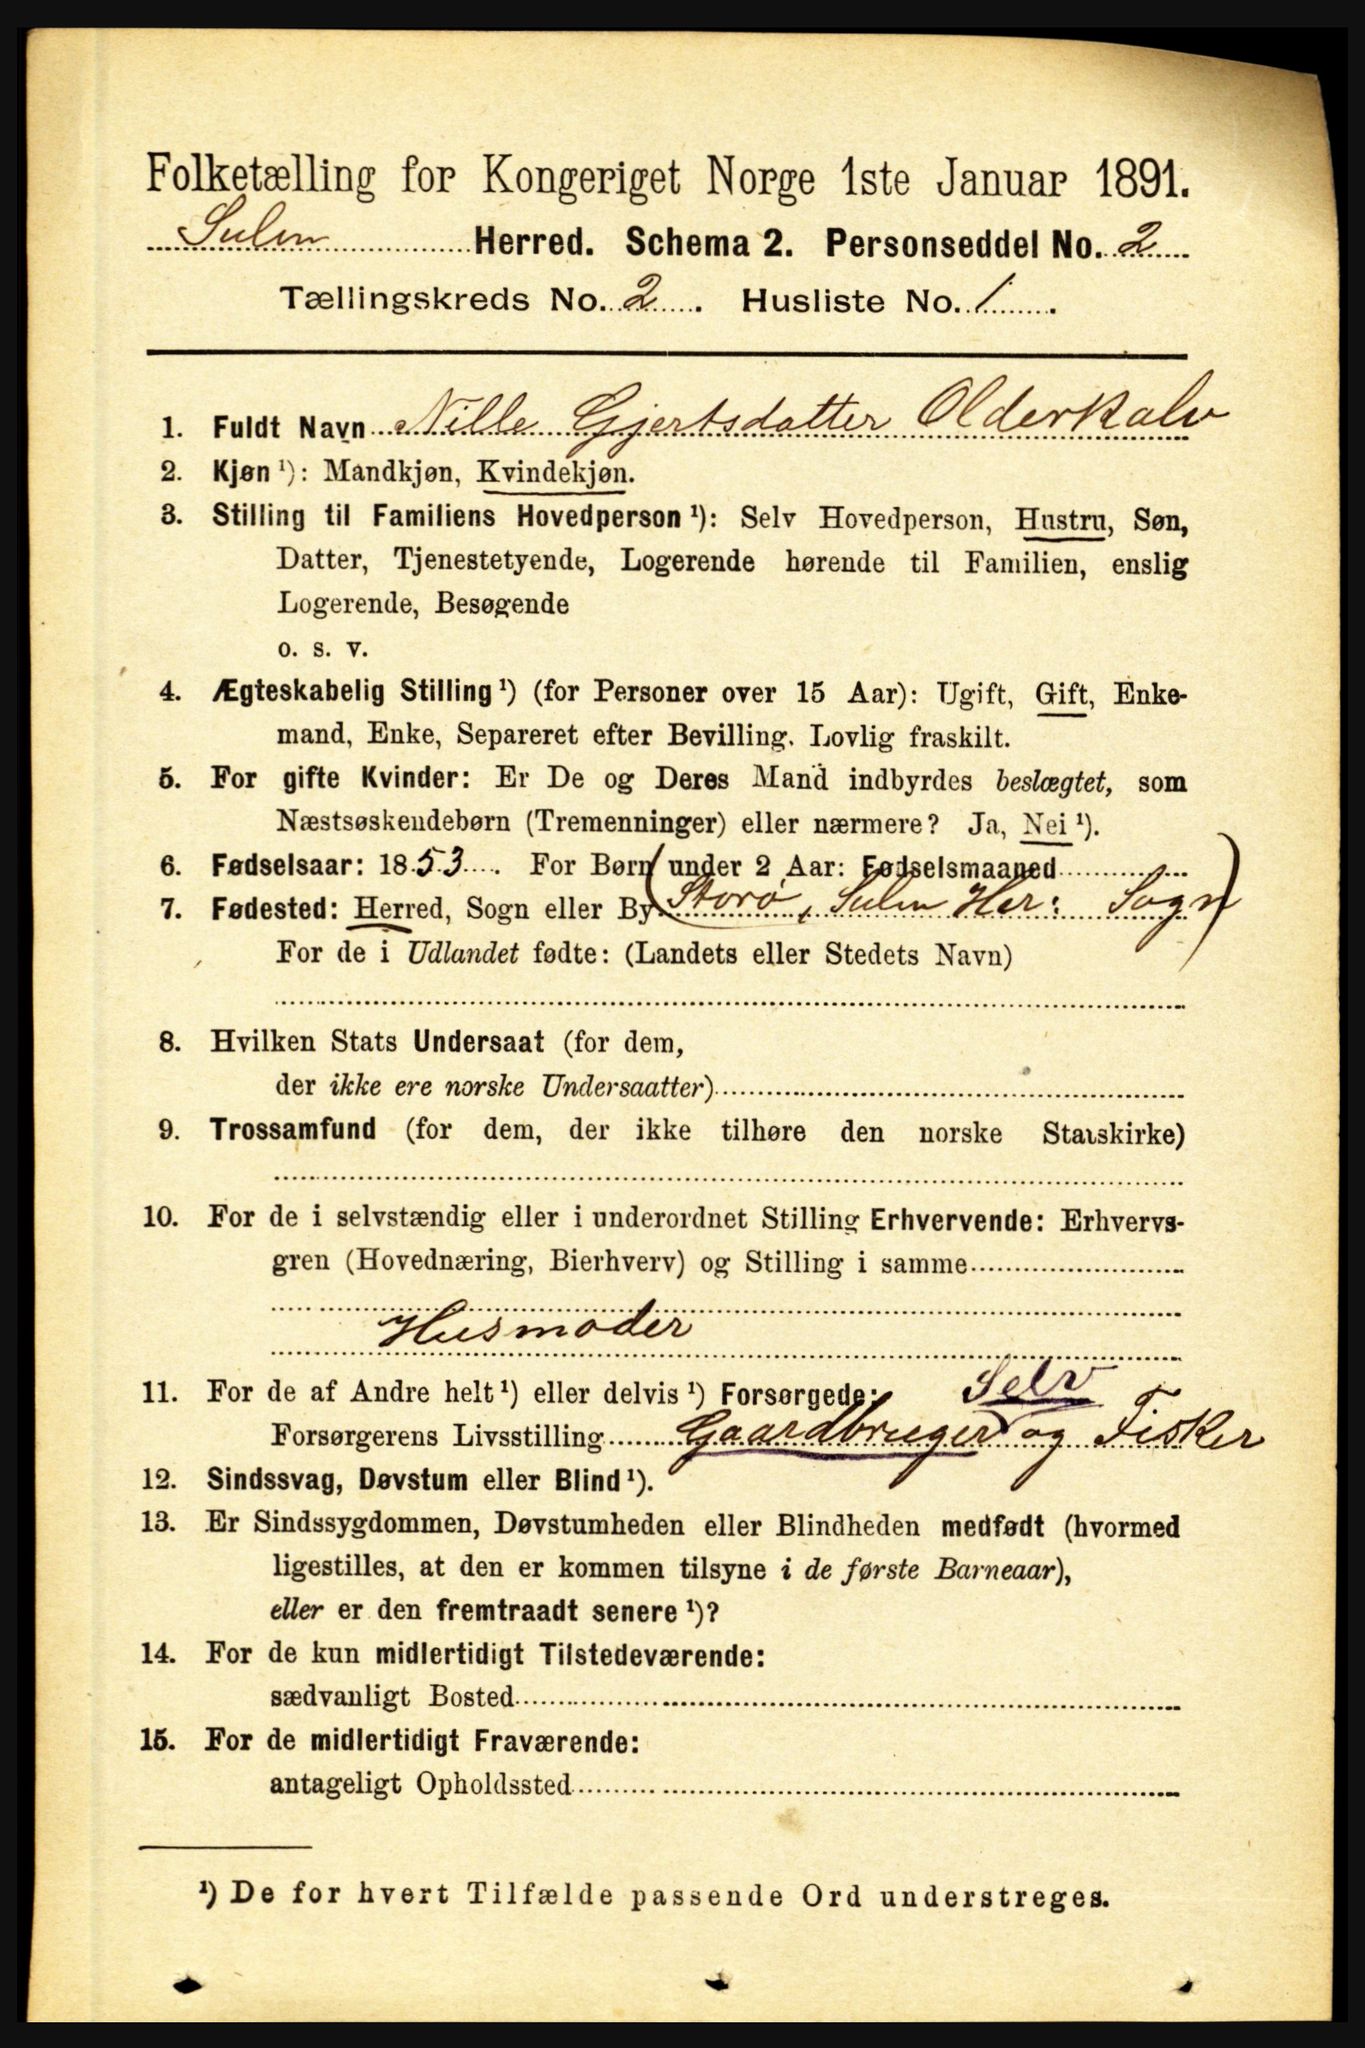 Folketælling for Kongeriget Norge 1ste Januar 1891.
Sulen Herred. Schema 2. Personseddel No. 2
Tællingskreds No. 2. Husliste No. 1.
1. Fuldt Navn Nille Gjertsdatter Olderkalv
2. Kjøn ¹): Mandkjøn, Kvindekjøn.
3. Stilling til Familiens Hovedperson ¹): Selv Hovedperson, Hustru, Søn,
Datter, Tjenestetyende, Logerende hørende til Familien, enslig
Logerende, Besøgende
o. s. v.
4. Ægteskabelig Stilling ¹) (for Personer over 15 Aar): Ugift, Gift, Enke-
mand, Enke, Separeret efter Bevilling. Lovlig fraskilt.
5. For gifte Kvinder: Er De og Deres Mand indbyrdes beslægtet, som
Næstsøskendebørn (Tremenninger) eller nærmere? Ja, Nei ¹).
6. Fødselsaar: 1853. For Børn under 2 Aar: Fødselsmaaned
7. Fødested: Herred, Sogn eller By (Storø, Sulen Her: Sogn)
For de i Udlandet fødte: (Landets eller Stedets Navn)
8. Hvilken Stats Undersaat (for dem,
der ikke ere norske Undersaatter)
9. Trossamfund (for dem, der ikke tilhøre den norske Statskirke)
10. For de i selvstændig eller i underordnet Stilling Erhvervende: Erhvervs-
gren (Hovednæring, Bierhverv) og Stilling i samme
Husmoder
11. For de af Andre helt ¹) eller delvis ¹) Forsørgede: Selv
Forsørgerens Livsstilling Gaardbruger og Fisker
12. Sindssvag, Døvstum eller Blind ¹).
13. Er Sindssygdommen, Døvstumheden eller Blindheden medfødt (hvormed
ligestilles, at den er kommen tilsyne i de første Barneaar),
eller er den fremtraadt senere ¹)?
14. For de kun midlertidigt Tilstedeværende:
sædvanligt Bosted
15. For de midlertidigt Fraværende:
antageligt Opholdssted
¹) De for hvert Tilfælde passende Ord understreges.